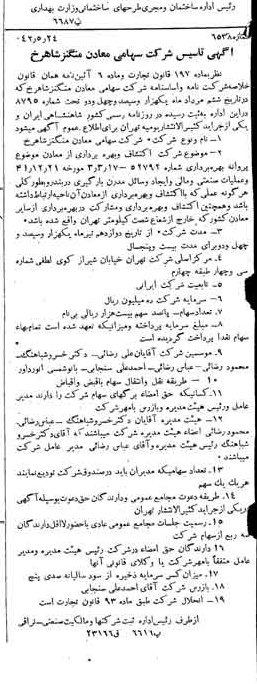 رئیس اداره ساختمان ومجری طرحهای ساختمانی وزارت بهداری
۶۶۸۷
شماره ۶۵۳۸ ۴۲٫۵٫۲۴
آگهی تاسیس شرکت سهامی معادن منگنز شاهرخ
نظر بماده ۱۹۷ قانون تجارت وماده ۶ آئین نامه همان قانون
خلاصه شرکت نامه واساسنامه شرکت سهامی معادن منگنز شاهرخ که
در تاریخ ششم مرداد ماه یکهزار وسیصد وچهل ودو تحت شماره ۸۷۹۵
در این اداره به ثبت رسیده در روزنامه رسمی کشور شاهنشاهی ایران و
یکی از جراید کثیرالانتشار یومیه تهران برای اطلاع عموم آگهی میشود
۱ – نام ونوع شرکت – شرکت سهامی معادن منگنز شاهرخ
۲ – موضوع شرکت – اکتشاف وبهره برداری از معادن موضوع
پروانه بهره برداری شماره ۵۲۷۹۲ – ۱۷٫۳٫۳ مورخه ۴۱٫۱۲٫۲۱
وعملیات صنعتی ومالی وایجاد وسائل مدرن بارگیری در بندر و بطور کلی
هر گونه عملی که با اکتشاف وبهره برداری از معادن آن ناحیه ارتباط داشته
باشد وهمچنین اکتشاف وبهره برداری ومشارکت در بهره برداری از سایر
معادن کشور که خارج از شعاع شصت کیلومتر تهران واقع شده باشد
۳ – مدت شرکت – از تاریخ دوازدهم تیر ماه یکهزار وسیصد و
چهل ودو برای مدت بیست وپنجسال
۴ – مرکز اصلی شرکت تهران خیابان شیراز کوی لطفی شماره
سی وچهار طبقه چهارم
۵ – تابعیت شرکت ایرانی
۶ – سرمایه شرکت ده میلیون ریال
۷ – تعداد سهام – پانصد سهم بیست هزار ریالی بی نام
۸ – مبلغ سرمایه پرداخته ومیزانیکه تعهد شده است تمام بهاء
سهام نقدا پرداخت گردیده است
۹ – موسسین شرکت آقایان علی رضائی – دکتر خسرو شباهنگ –
محمود رضائی – عباس رضائی – احمدعلی سنجابی – بانو شمسی انور داور
۱۰ – طریقه نقل وانتقال سهام باقبض واقباض
۱۱ – کسانیکه حق امضاء برگهای سهام شرکت را دارند مدیر
عامل ورئیس هیئت مدیره وبازرس بامهر شرکت
۱۲ – هیئت مدیره آقایان دکتر خسرو شباهنگ – عباس رضائی
محمود رضائی اعضاء هیئت مدیره شرکت میباشند که آقای دکتر خسرو
شباهنگ رئیس هیئت مدیره وآقای عباس رضائی مدیر عامل شرکت
میباشند
۱۳ – تعداد سهامیکه مدیران باید در صندوق شرکت تودیع نمایند
هر یک یک سهم
۱۴ – طریقه دعوت مجامع عمومی ودارندگان حق دعوت بوسیله آگهی
در یکی از جراید کثیرالانتشار تهران
۱۵ – رسمیت جلسات مجامع عمومی عادی با حضور لااقل دارندگان
سه ربع از سهام شرکت
۱۶ – دارندگان حق امضاء در شرکت رئیس هیئت مدیره ومدیر
عامل متفقا بامهر شرکت یا وکلای قانونی آنها
۱۷ – میزان کسر سرمایه ذخیره از سود سالیانه صدی پنج
۱۸ – بازرس شرکت آقای احمدعلی سنجابی
۱۹ – انحلال شرکت طبق ماده ۹۳ قانون تجارت است
از طرف رئیس اداره ثبت شرکتها ومالکیت صنعتی – نراقی
پ ۶۶۱۱ ق ۲۳۱۶۶